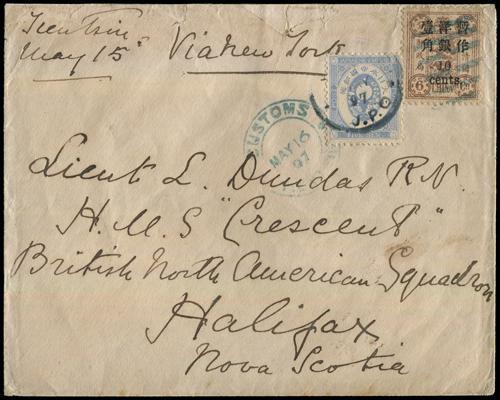 Tientsin
May 15
Via New York
壹洋暫
角銀作
10
cents.
6
97
J.P.O
CUSTOMS
MAY 16
97
Lieut L. Dundas R.N.
H.M.S "Crescent"
British North American Squadron
Halifax
Nova Scotia